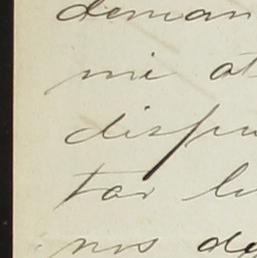 deman
mi at
dispu
tar lu
nos de